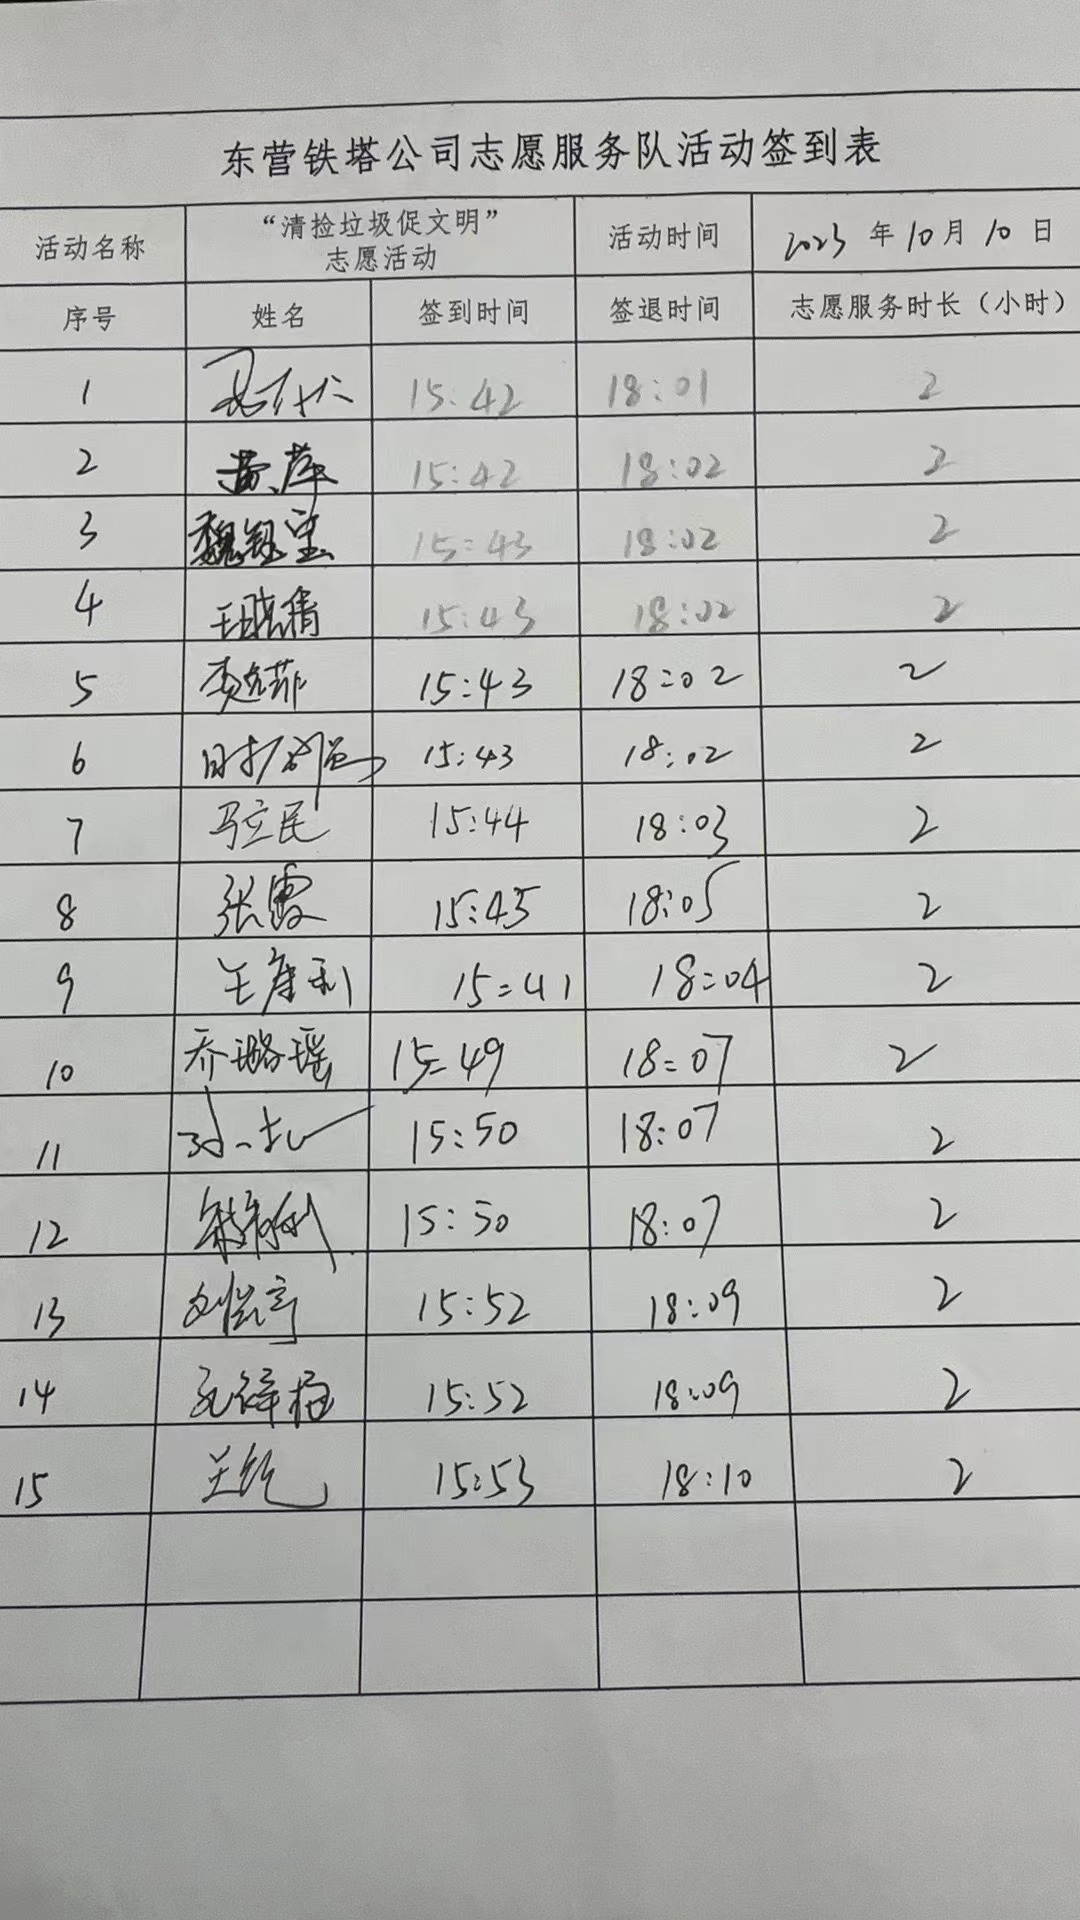 东营铁塔公司志愿服务队活动签到表
活动名称 “清捡垃圾促文明”志愿活动 活动时间 2023年10月10日
序号 姓名 签到时间 签退时间 志愿服务时长（小时）
1 15:42 18:01 2
2 黄萍 15:42 18:02 2
3 魏钰莹 15:43 18:02 2
4 王晓倩 15:43 18:02 2
5 15:43 18:02 2
6 15:43 18:02 2
7 马立民 15:44 18:03 2
8 张霞 15:45 18:05 2
9 王康利 15:41 18:04 2
10 乔璐瑶 15:49 18:07 2
11 15:50 18:07 2
12 15:50 18:07 2
13 15:52 18:09 2
14 15:52 18:09 2
15 15:53 18:10 2